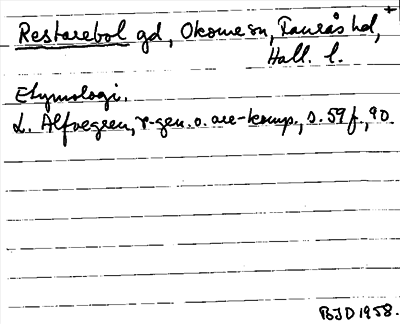 Restarebol gd, Okome sn, Faurås hd,
Hall. l.
Etymologi.
L. Alfvegren, r-gen. o. are-komp., s. 59 f., 90.
BJD 1958.